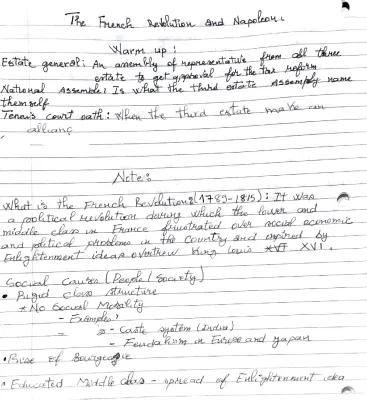 The French Revolution and Napoleon.
Warm up :
Estate general: An assembly of representative from all three
estate to get approval for the tax reform
National Assemble: Is what the third estate Assembly name
themself
Tennis court oath: When the third estate make an
allianç
Note:
What is the French Revolution?(1789-1815): It was
a political revolution during which the lower and
middle class in France frustrated over social economic
and political problems in the country and inspired by
Enlightenment ideas overthrew King Louis XVI.
Social Causes (People/Society)
• Rigid class structure
* No Social Mobility
- Examples:
- Caste system (India)
- Feudalism in Europe and Japan
• Rise of Bourgeoisie
• Educated Middle class - spread of Enlightenment idea